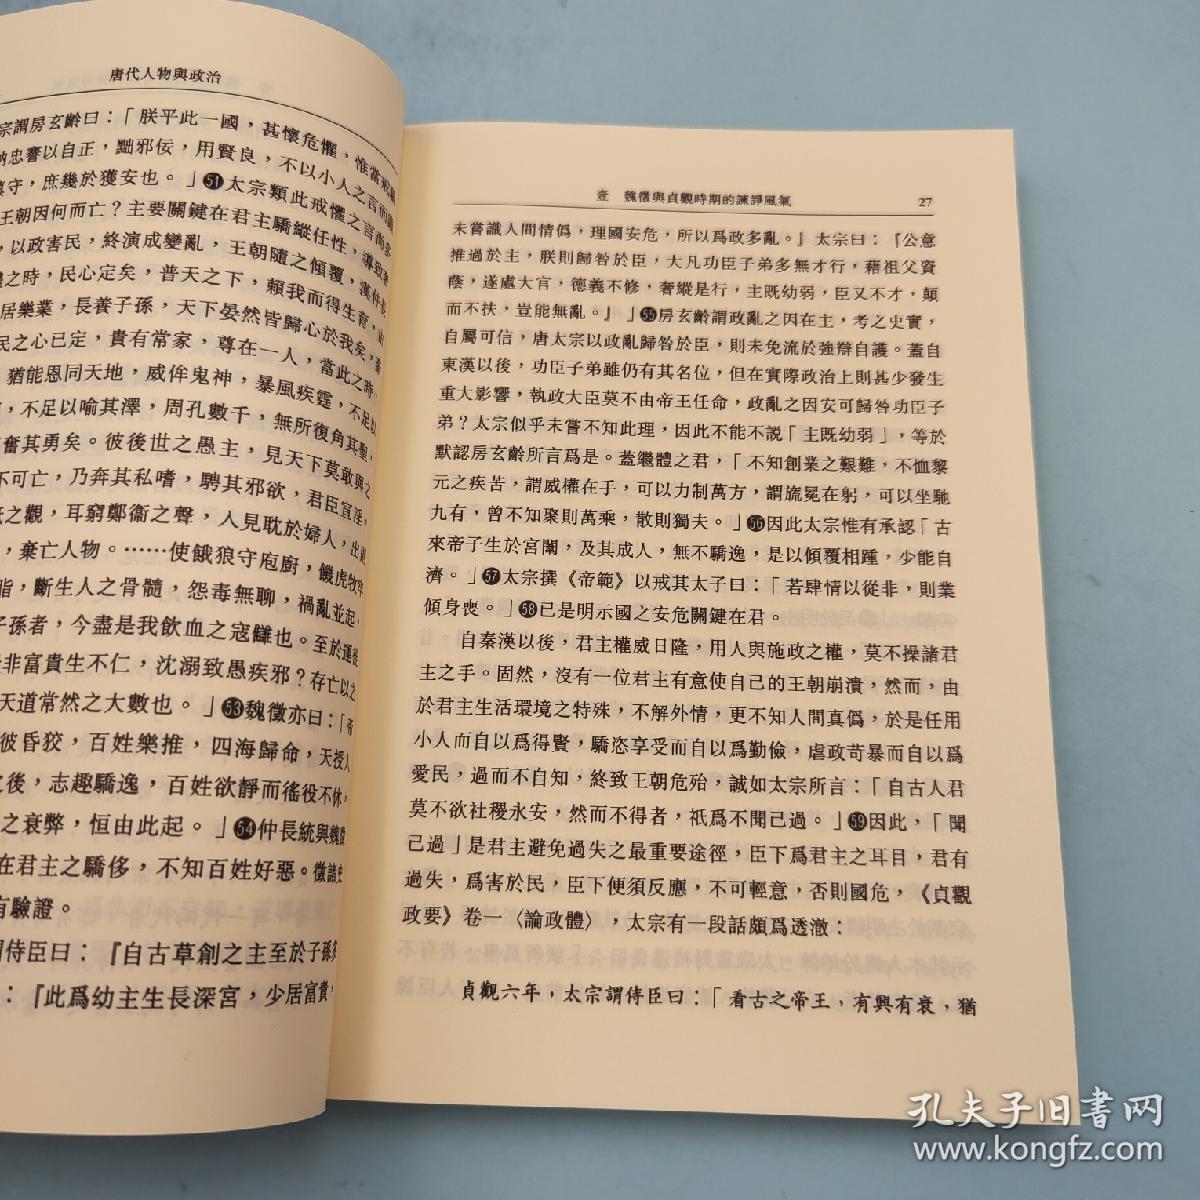 唐代人物與政治
宗謂房玄齡曰：「朕平此一國，甚懷危懼，惟當
忠謇以自正，黜邪佞，用賢良，不以小人之言而
守，庶幾於獲安也。」51太宗類此戒懼之言尚多
王朝因何而亡？主要關鍵在君主驕縱任性，導致
，以政害民，終演成變亂，王朝隨之傾覆，漢仲長
之時，民心定矣，普天之下，賴我而得生育，由
居樂業，長養子孫，天下晏然皆歸心於我矣，
民之心已定，貴有常家，尊在一人，當此之時，
猶能恩同天地，威侔鬼神，暴風疾霆，不足以
，不足以喻其澤，周孔數千，無所復角其聖，
奮其勇矣。彼後世之愚主，見天下莫敢與之
不可亡，乃奔其私嗜，騁其邪欲，君臣宣淫，
之觀，耳窮鄭衞之聲，入見耽於婦人，出
，棄亡人物。……使餓狼守庖廚，饑虎牧
脂，斷生人之骨髓，怨毒無聊，禍亂並起，
子孫者，今盡是我飲血之寇讎也。至於運徙
非富貴生不仁，沈溺致愚疾邪？存亡以之
天道常然之大數也。」53魏徵亦曰：「帝
彼昏狡，百姓樂推，四海歸命，天授人
之後，志趣驕逸，百姓欲靜而徭役不休，
之衰弊，恒由此起。」54仲長統與魏徵
在君主之驕侈，不知百姓好惡。徵諸史
有驗證。
侍臣曰：『自古草創之主至於子孫多
：『此爲幼主生長深宮，少居富貴，
壹　魏徵與貞觀時期的諫諍風氣　27
未嘗識人間情僞，理國安危，所以爲政多亂。』太宗曰：『公意
推過於主，朕則歸咎於臣，大凡功臣子弟多無才行，藉祖父資
蔭，遂處大官，德義不修，奢縱是行，主既幼弱，臣又不才，顛
而不扶，豈能無亂。』」55房玄齡謂政亂之因在主，考之史實，
自屬可信，唐太宗以政亂歸咎於臣，則未免流於強辯自護。蓋自
東漢以後，功臣子弟雖仍有其名位，但在實際政治上則甚少發生
重大影響，執政大臣莫不由帝王任命，政亂之因安可歸咎功臣子
弟？太宗似乎未嘗不知此理，因此不能不說「主既幼弱」，等於
默認房玄齡所言爲是。蓋繼體之君，「不知創業之艱難，不恤黎
元之疾苦，謂威權在手，可以力制萬方，謂旒冕在躬，可以坐馳
九有，曾不知聚則萬乘，散則獨夫。」56因此太宗惟有承認「古
來帝子生於宮闈，及其成人，無不驕逸，是以傾覆相踵，少能自
濟。」57太宗撰《帝範》以戒其太子曰：「若肆情以從非，則業
傾身喪。」58已是明示國之安危關鍵在君。
自秦漢以後，君主權威日隆，用人與施政之權，莫不操諸君
主之手。固然，沒有一位君主有意使自己的王朝崩潰，然而，由
於君主生活環境之特殊，不解外情，更不知人間真僞，於是任用
小人而自以爲得賢，驕恣享受而自以爲勤儉，虐政苛暴而自以爲
愛民，過而不自知，終致王朝危殆，誠如太宗所言：「自古人君
莫不欲社稷永安，然而不得者，祇爲不聞己過。」59因此，「聞
己過」是君主避免過失之最重要途徑，臣下爲君主之耳目，君有
過失，爲害於民，臣下便須反應，不可輕意，否則國危，《貞觀
政要》卷一〈論政體〉，太宗有一段話頗爲透澈：
貞觀六年，太宗謂侍臣曰：「看古之帝王，有興有衰，猶
孔夫子旧书网
www.kongfz.com